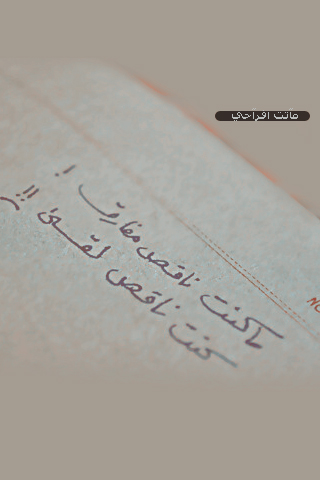 ماتت افراحي
ماكنت ناقص مفارق !
كنت ناقص لقى !!